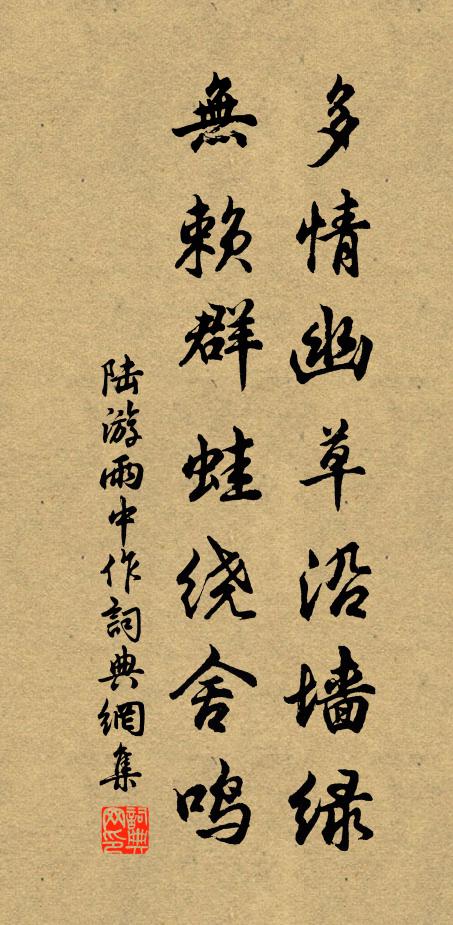 多情幽草沿墙绿
無赖群蛙绕舍鸣
陆游雨中作詞典網集
詞典网印